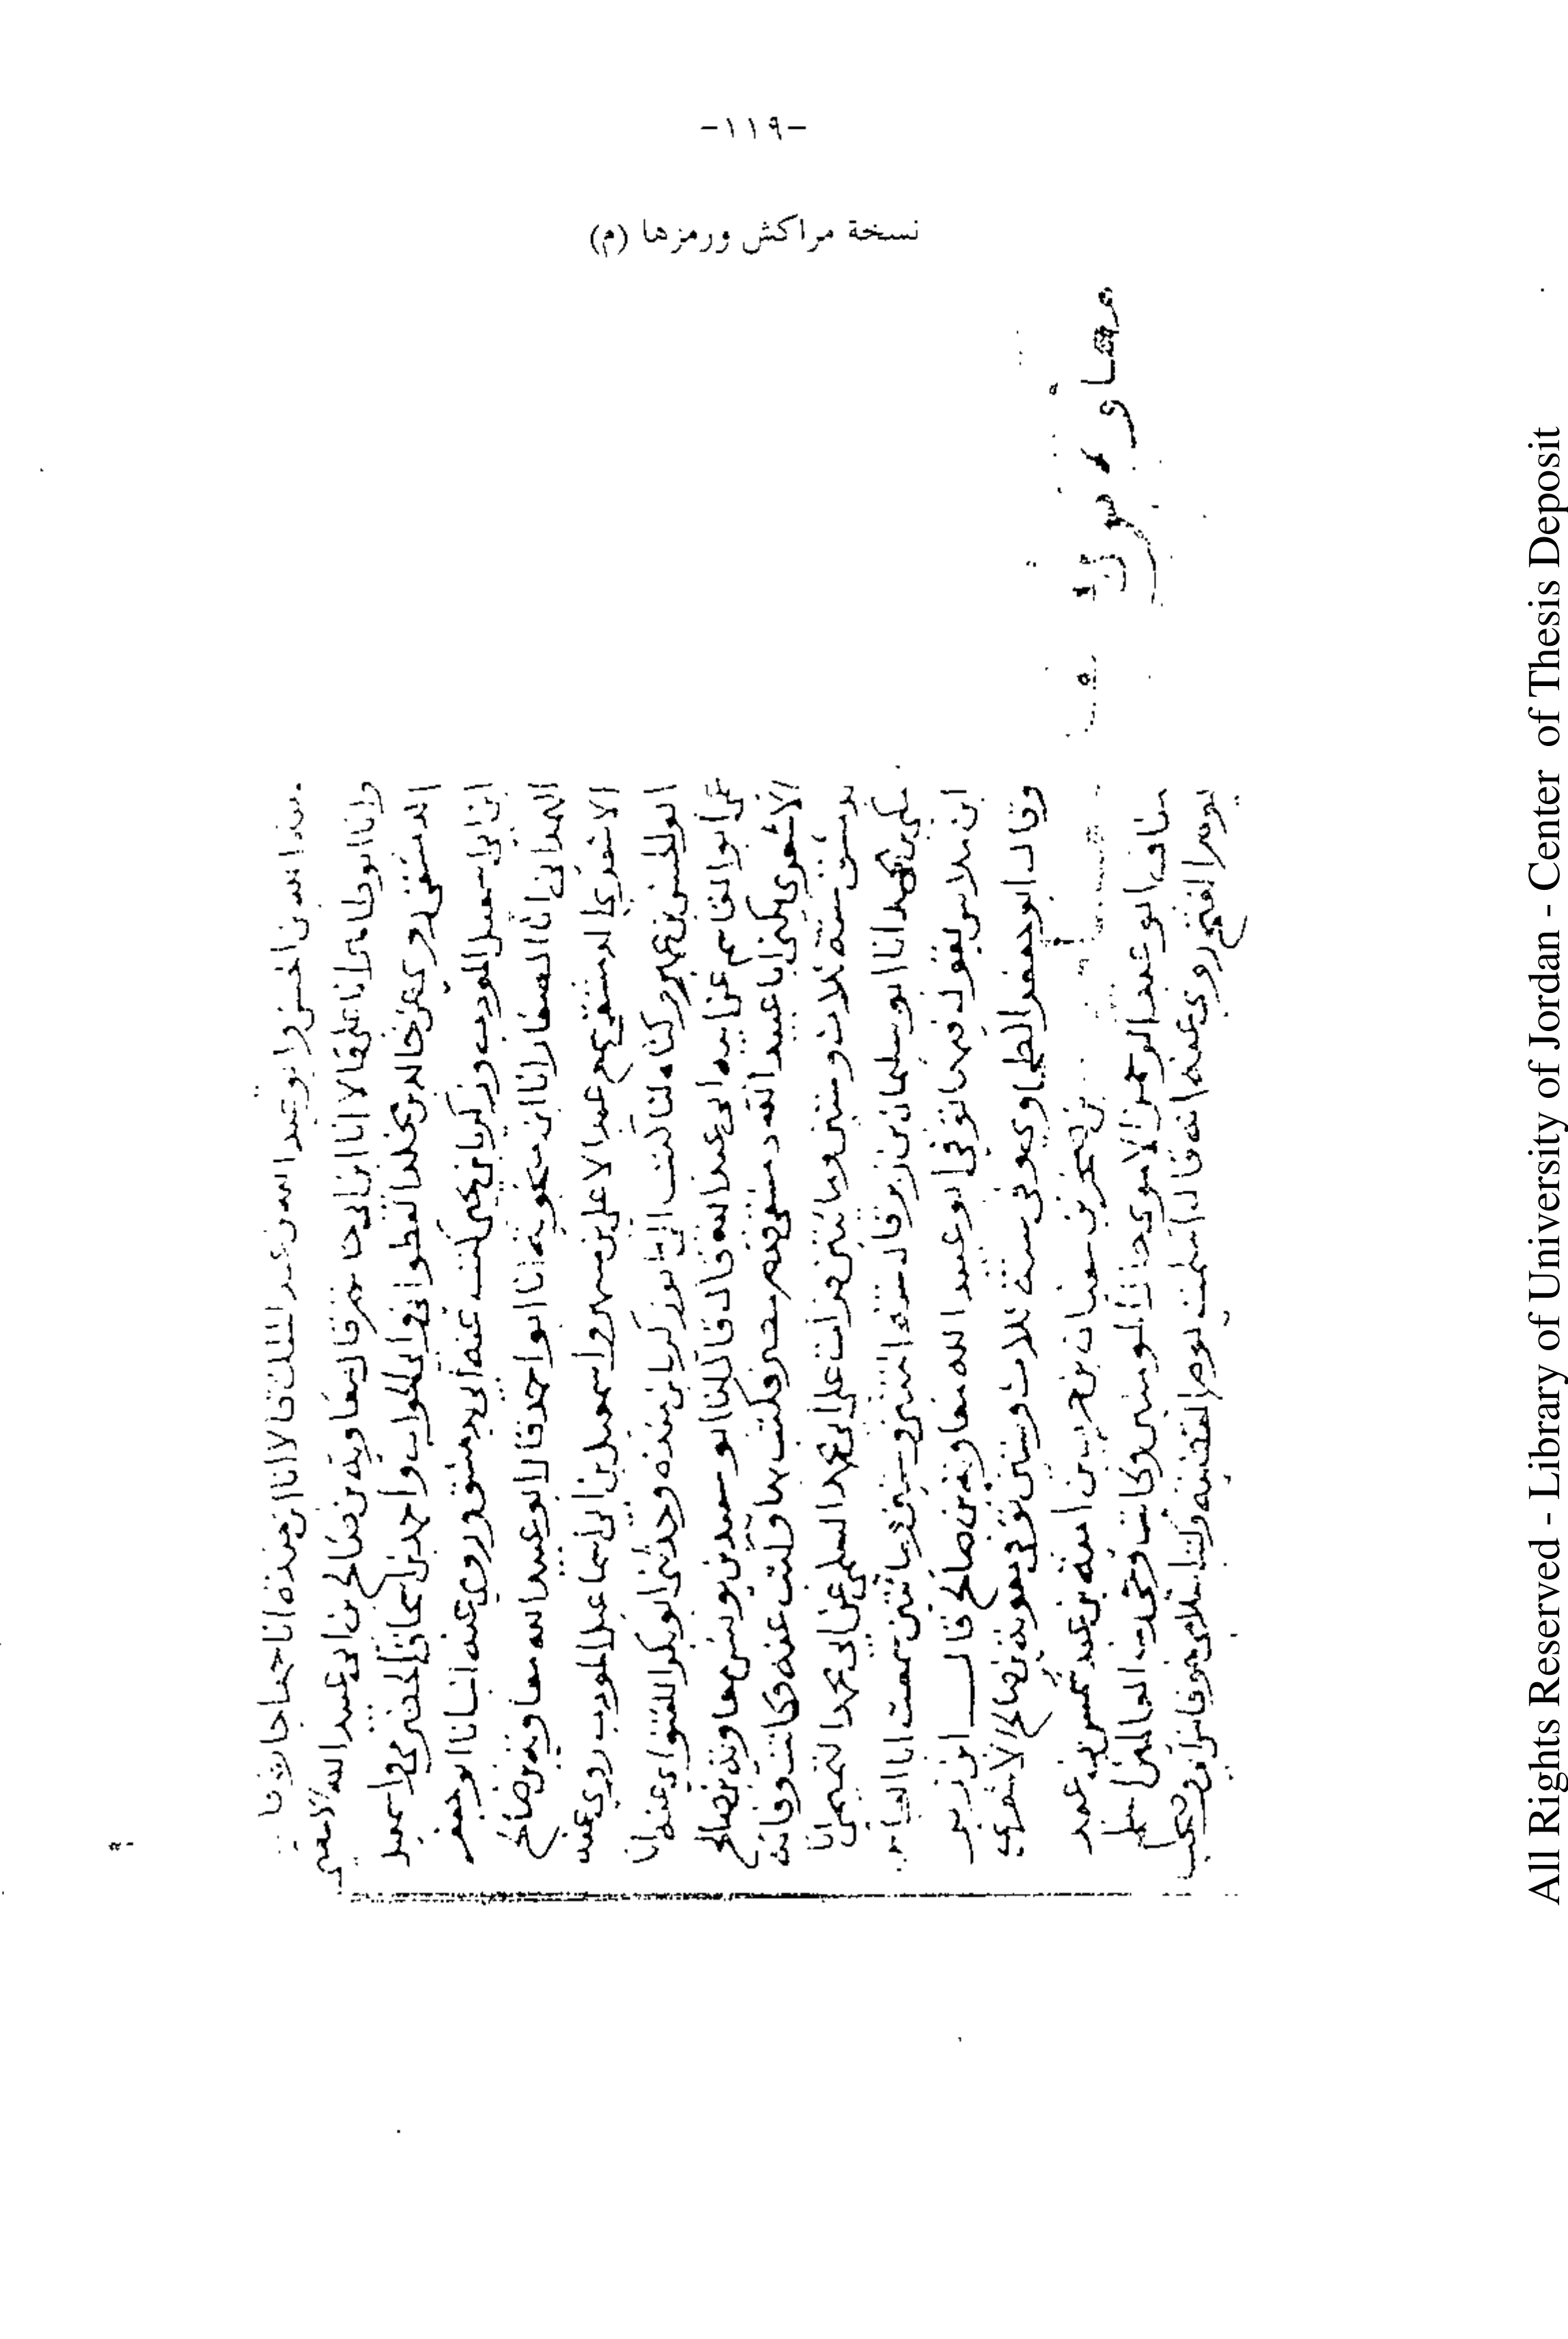 -١١٩-
نسخة مراكش ورمزها (م)
عبد الله بن الحسن وابو عبد الله بن عبد الملك قالا انا ابن منده انا حمد اجازة
وانا ابو طاهر انا علي قالا انا ابن ابي حاتم قال معاوية بن صالح بن ابي عبيد الله الاشعري
الدمشقي روى عن خالد بن مخلد القطواني وابي الجواب واحمد بن اسحاق الحضرمي واسمعيل
ابن ابي سمعيل المودب وزكريا بن يحيى كتب عنه ابي بدمشق وروى عنه انبانا ابو جعفر
الهمداني انا الصفار انا ابن منجويه انا ابو احمد قال ابو عبيد الله معاوية بن صالح
الاشعري الدمشقي سمع عبد الاعلى بن مسهر واسمعيل بن ابي اسماعيل المودب روى عنه
ابو الحسن بن عمير كناه لنا كتب الي ابو زكريا بن منده وحدثني ابو بكر اللفتواني عنه انا
عمي ابو القاسم عن ابيه ابي عبد الله قال قال لنا ابو سعيد بن يونس معاوية بن صالح
الاشعري يكنى ابا عبيد الله دمشقي قدم مصر فكتب بها وكتب عنه وكانت وفاته
بدمشق سنة ثلاث وستين ومائتين قرات على ابي محمد السلمي عن ابي محمد التميمي انا
مكي بن محمد انا ابو سليمان بن زبر قال سنة اثنتين وستين ومائتين سمعت ابا العباس
ابن ملاس يقول فيها توفي ابو عبيد الله معاوية بن صالح قال ابن زبر
وقال ابو جعفر الطحاوي يعني سنة ثلاث وستين توفي معوية بن صالح الاشعري
معاوية بن
بن صخر بن سفيان بن حرب بن امية بن عبد شمس بن عبد
مناف ابو عبد الرحمن الاموي خال المومنين وكاتب وحي رب العالمين اسلم
يوم الفتح روي عنه انه قال اسلمت يوم القضية وكتمت اسلامي خوفا من ابي وصحب
All Rights Reserved - Library of University of Jordan - Center of Thesis Deposit